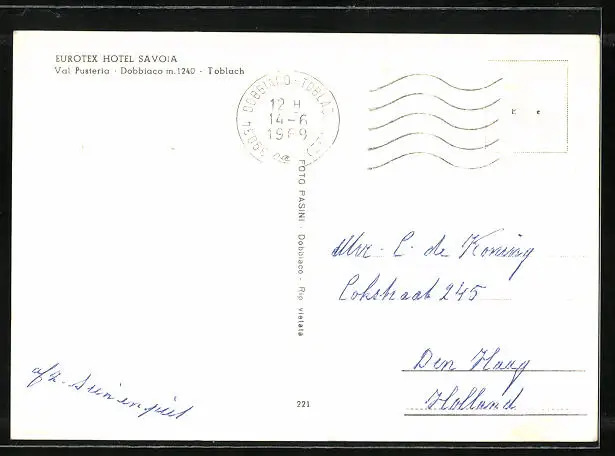 EUROTEX HOTEL SAVOIA
Val Pusteria · Dobbiaco m. 1240 · Toblach
39034 DOBBIACO - TOBLAC
12 H
14-6
1969
FOTO PASINI · Dobbiaco - Rip. vietata
Mvr. C. de Koning
Lokstraat 245
Den Haag
Holland
afz.
221